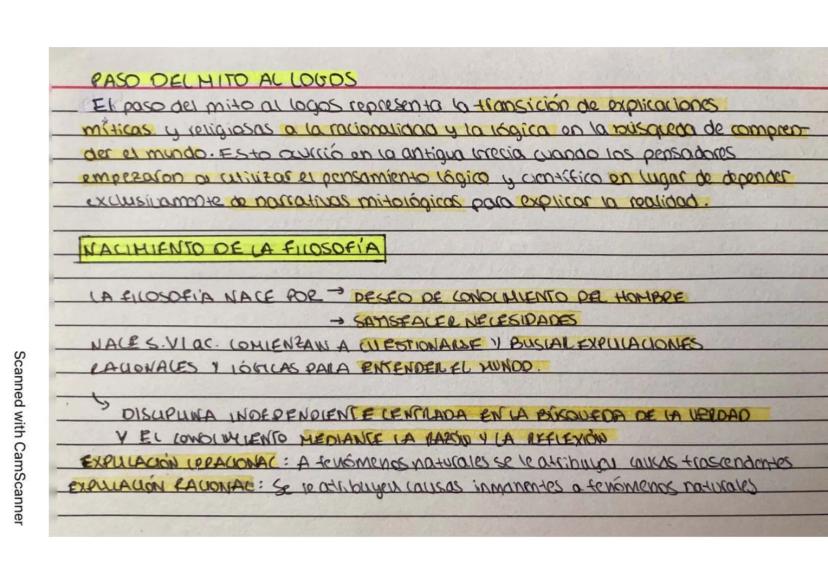 PASO DEL MITO AL LOGOS
El paso del mito al logos representa la transición de explicaciones
míticas y religiosas a la racionalidad y la lógica en la búsqueda de compren-
der el mundo. Esto ocurrió en la antigua Grecia cuando los pensadores
empezaron a utilizar el pensamiento lógico y científico en lugar de depender
exclusivamente de narrativas mitológicas para explicar la realidad.
NACIMIENTO DE LA FILOSOFÍA
LA FILOSOFÍA NACE POR → DESEO DE CONOCIMIENTO DEL HOMBRE
→ SATISFACER NECESIDADES
NACE S.VI aC. COMIENZAN A CUESTIONARSE Y BUSCAR EXPLICACIONES
RACIONALES Y LÓGICAS PARA ENTENDER EL MUNDO.
↳ DISCIPLINA INDEPENDIENTE CENTRADA EN LA BÚSQUEDA DE LA VERDAD
Y EL CONOCIMIENTO MEDIANTE LA RAZÓN Y LA REFLEXIÓN
EXPLICACIÓN IRRACIONAL: A fenómenos naturales se le atribuyen causas trascendentes
EXPLICACIÓN RACIONAL: Se le atribuyen causas inmanentes a fenómenos naturales
Scanned with CamScanner